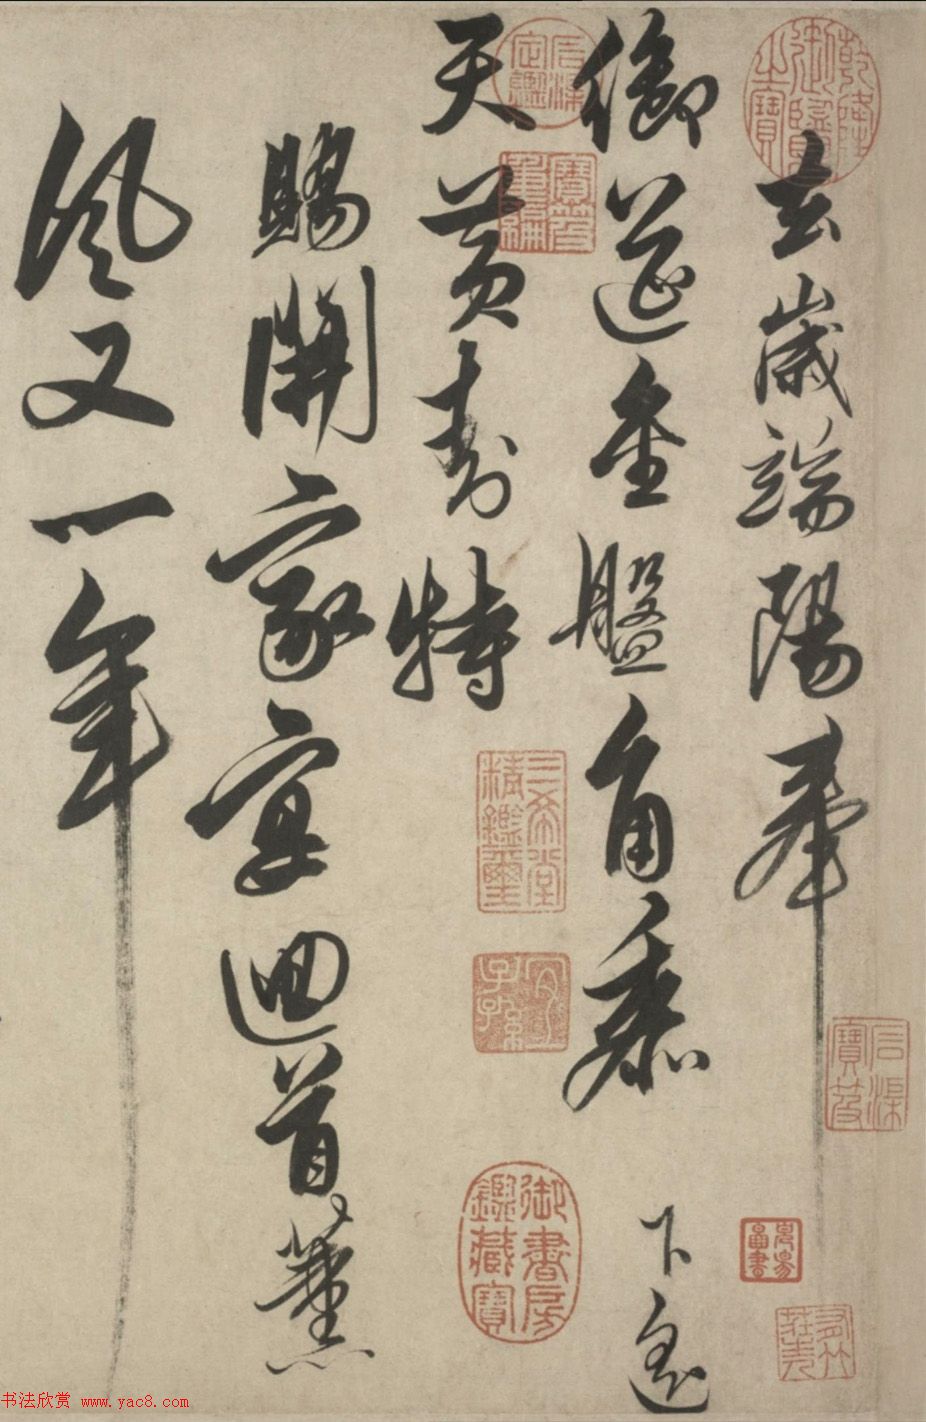 去歲端陽奉
御筵金盤角黍下遙
天黃封特
賜開家宴迴首薰
風又一年
乾隆御覽之寶
石渠定鑑
寶笈重編
三希堂精鑑璽
宜子孫
石渠寶笈
御書房鑑藏寶
书法欣赏 www.yac8.com